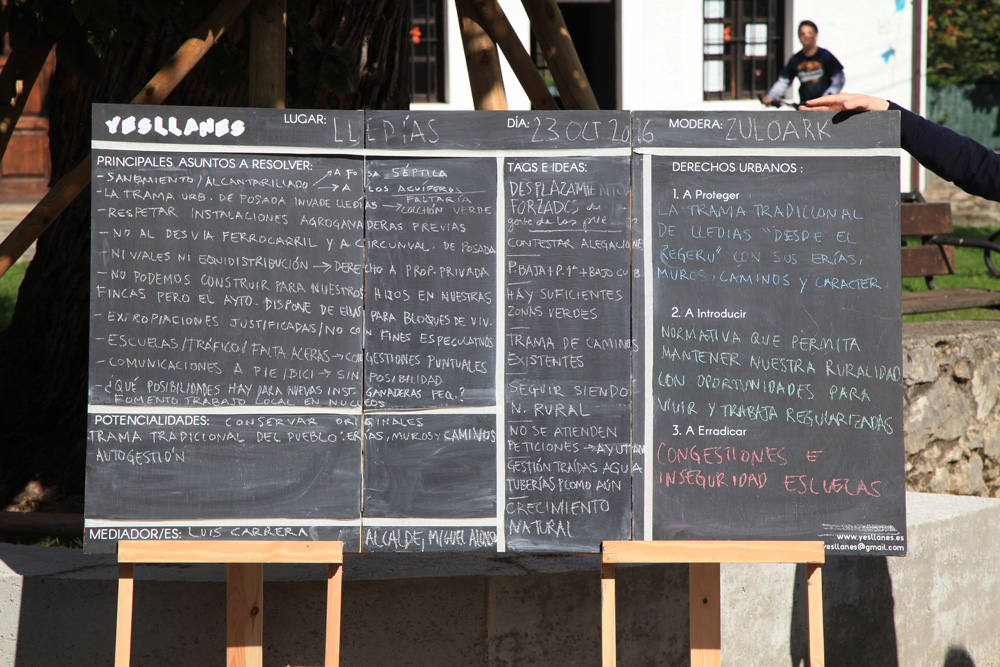 YESLLANES
LUGAR: LLEDÍAS
DÍA: 23 OCT 2016
MODERA: ZULOARK
PRINCIPALES ASUNTOS A RESOLVER:
- SANEAMIENTO/ALCANTARILLADO → A FOSA SÉPTICA
→ A LOS ACUÍFEROS
- LA TRAMA URB. DE POSADA INVADE LLEDÍAS → FALTARÍA COLCHÓN VERDE
- RESPETAR INSTALACIONES AGROGANADERAS PREVIAS
- NO AL DESVIA FERROCARRIL Y A CIRCUNVAL. DE POSADA
- NI VALES NI EQUIDISTRIBUCIÓN → DERECHO A PROP. PRIVADA
- NO PODEMOS CONSTRUIR PARA NUESTROS HIJOS EN NUESTRAS
FINCAS PERO EL AYTO. DISPONE DE ELLAS PARA BLOQUES DE VIV.
- EXPROPIACIONES JUSTIFICADAS/NO CON FINES ESPECULATIVOS
- ESCUELAS//TRÁFICO/FALTA ACERAS → CONGESTIONES PUNTUALES
- COMUNICACIONES A PIE/BICI → SIN POSIBILIDAD
- ¿QUÉ POSIBILIDADES HAY PARA NUEVAS INST. GANADERAS PEQ.?
FOMENTO TRABAJO LOCAL EN NUCLEOS
POTENCIALIDADES: CONSERVAR ORIGINALES
TRAMA TRADICIONAL DEL PUEBLO: ERÍAS, MUROS Y CAMINOS
AUTOGESTIÓN
MEDIADOR/ES: LUIS CARRERA ALCALDE, MIGUEL ALONSO
TAGS E IDEAS:
DESPLAZAMIENTO
FORZADOS de
gente de los
CONTESTAR ALEGACIONE
P.BAJA + P.1ª + BAJO CUB
HAY SUFICIENTES
ZONAS VERDES
TRAMA DE CAMINOS
EXISTENTES
SEGUIR SIENDO
N. RURAL
NO SE ATIENDEN
PETICIONES → AYUTAM
GESTIÓN TRAÍDAS AGUA
TUBERÍAS PLOMO AÚN
CRECIMIENTO
NATURAL
DERECHOS URBANOS :
1. A Proteger
LA TRAMA TRADICIONAL
DE LLEDIAS "DESDE EL
REGERU" CON SUS ERÍAS,
MUROS, CAMINOS Y CARACTER.
2. A Introducir
NORMATIVA QUE PERMITA
MANTENER NUESTRA RURALIDAD
CON OPORTUNIDADES PARA
VIVIR Y TRABAJA REGULARIZADAS
3. A Erradicar
CONGESTIONES E
INSEGURIDAD ESCUELAS
www.yesllanes.es
yesllanes@gmail.com